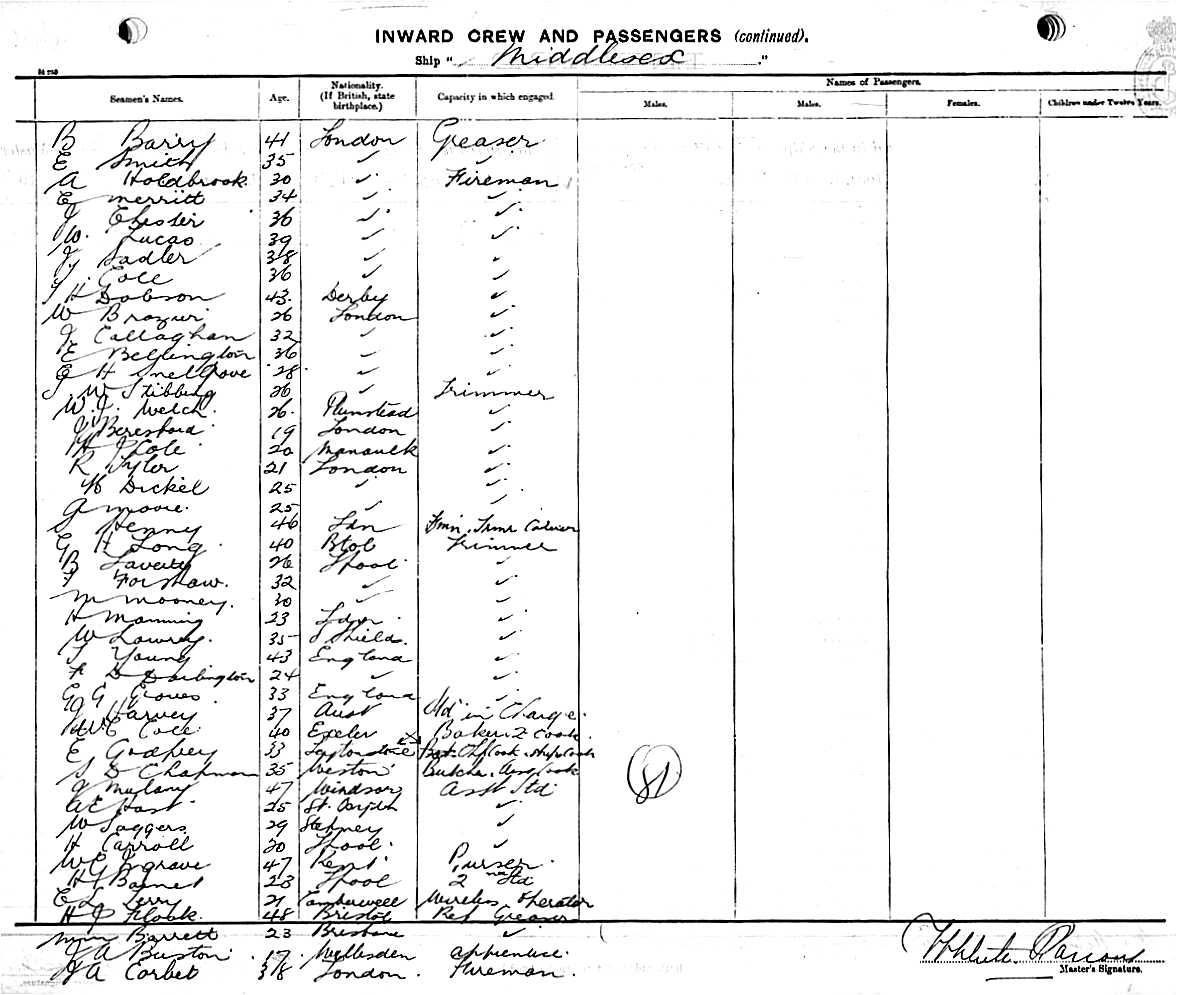 INWARD CREW AND PASSENGERS (continued).
Ship " Middlesex "
Seamen's Names. Age. Nationality. (If British, state birthplace.) Capacity in which engaged. Names of Passengers.
Males. Males. Females. Children under Twelve Years.
B Barry 41 London Greaser
E Smith 35 ✓ ✓
A Holdbrook 30 ✓ Fireman
E Merritt 34 ✓ ✓
J Chester 36 ✓ ✓
W. Lucas 39 ✓ ✓
J Sadler 38 ✓ ✓
J. Cole 36 ✓ ✓
J H Dobson 43. Derby ✓
W Brazier 26 London ✓
J Callaghan 32 ✓ ✓
E Bellington 36 ✓ ✓
E H Snelgrove 28 ✓ ✓
J W Stibbing 26 ✓ Trimmer
W. J. Welch. 26. Plumstead ✓
J Beresford 19 London ✓
H J Cole 20 ✓
R Tyler 21 London ✓
W Dickel 25 ✓ ✓
G Moore. 25 ✓ ✓
S Henny 46 Ldn Fmn. Trmr
G H Long 40 Btol Trimmer
B Laverty 26 Lpool ✓
F Forshaw. 32 ✓ ✓
M Mooney. 30 ✓ ✓
H Manning 23 Ldn. ✓
W Lowrey. 35 S Shields. ✓
T Young 43 England ✓
F D Darlington 24 ✓ ✓
G G Groves 33 England ✓
J Harvey 37 Aust Std in Charge.
Cole 40 Exeter Baker 2 Cook
E Godfrey 33 Leytonstone Cook Ships Cook
S D Chapman 35 Weston Butcher Asst Cook
J Mulany 47 Windsor Asst Std
A E Hast 25 St. ✓
W Saggers 29 Stepney ✓
H Carroll 20 Lpool. ✓
W G Ingrave 47 Kent Purser
H G Barnes 23 Lpool 2nd Std
E L Terry 21 Camberwell Wireless Operator
H J Flook. 48 Bristol Ref Greaser
81
Wm Barrett 23 Brisbane ✓
J A Buston 17 Willesden apprentice.
J A Corbet 38 London. Fireman.
Master's Signature.